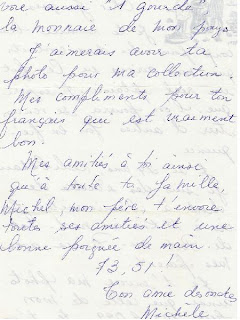 aussi "1 gourde"
la monnaie de mon pays
J'aimerais avoir ta
photo pour ma collection.
Mes compliments pour ton
français qui est vraiment
bon.
Mes amitiés à toi ainsi
qu'à toute ta famille,
Michel, mon père, t'envoie
toutes ses amitiés et une
bonne poignée de main
73, 51 !
Ton amie des ondes
Michèle